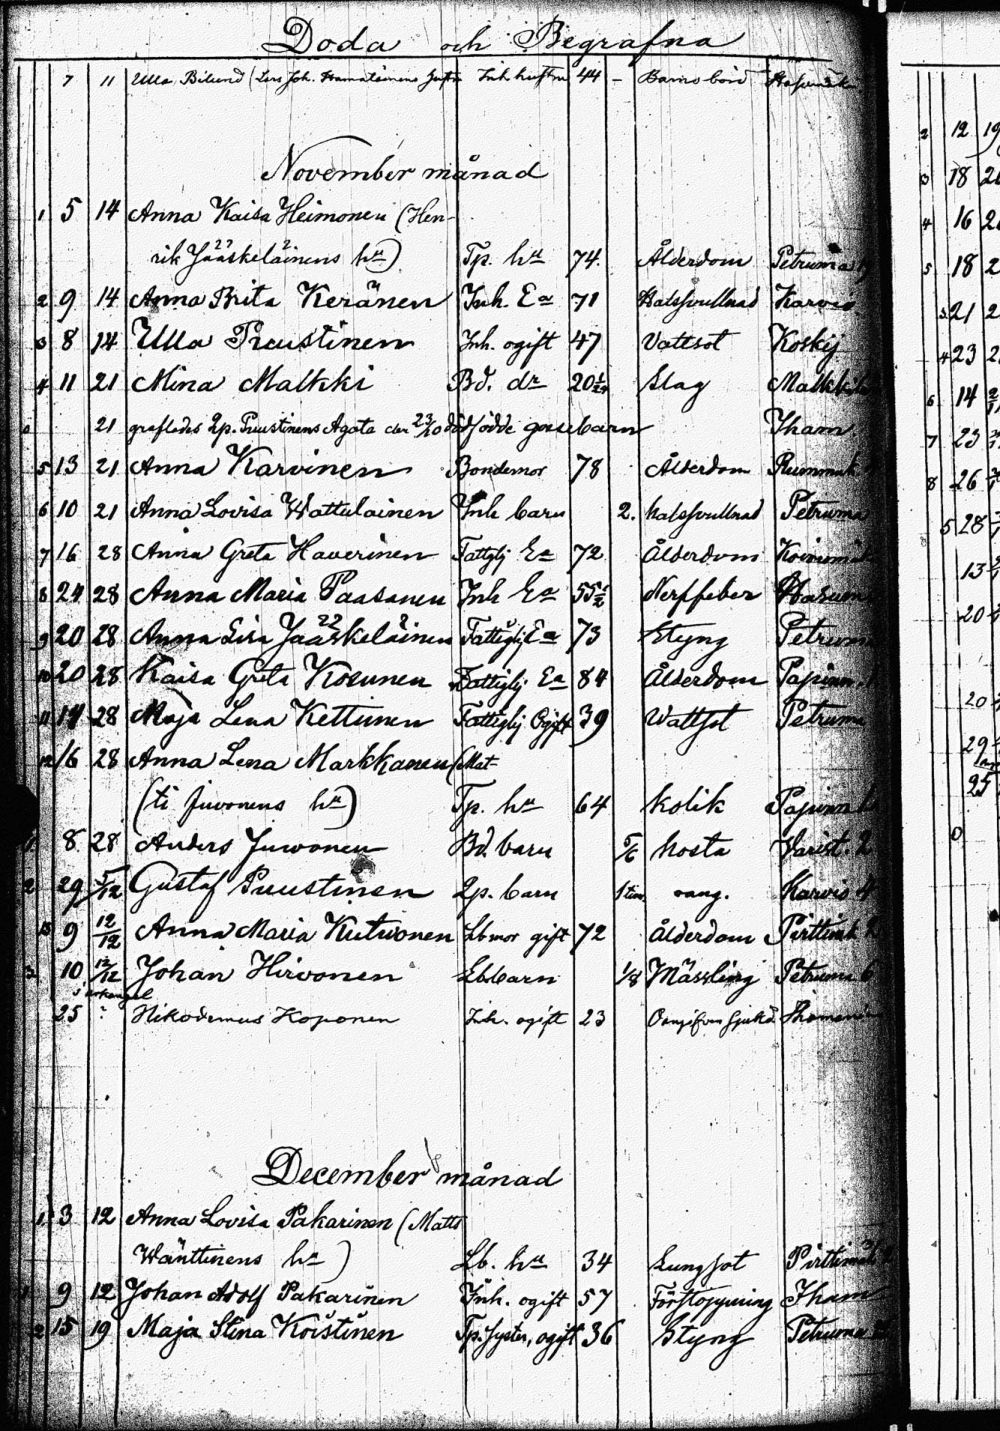 Döda och Begrafna
7 11 Ulla Bilund (Lars Joh. 44 – Barnsbörd
November månad
1 5 14 Anna Kaisa Heimonen (Hen-
rik Jääskeläinens hu) Tp. hu 74. Ålderdom Petruma
2 9 14 Anna Brita Keränen Inh. Ea 71 Halssvullnad Karvio
3 8 14 Ulla Puustinen Inh. ogift 47 Vattsot Koskij
4 11 21 Mina Malkki Bd. dr 20 1/24 Slag Malkki
21 grafledes Lp. Puustinens Agata den 23/10 dödfödde gossebarn Tham
5 13 21 Anna Karvinen Bondemor 78 Ålderdom Rummuk
6 10 21 Anna Lovisa Wattulainen Inh barn 2. halssvullnad Petruma
7 16 28 Anna Greta Haverinen Fattighj Ea 72 Ålderdom
8 24 28 Anna Maria Paasanen Inh Ea 55 1/2 Nerffeber
9 20 28 Anna Lisa Jääskeläinen Fattighj Ea 73 Styng Petruma
10 20 28 Kaisa Greta Kosunen Fattighj Ea 84 Ålderdom Papinn
11 14 28 Maja Lena Kettunen Fattighj Ogift 39 Wattsot Petruma
12 16 28 Anna Lena Markkanen (Mat-
(ti Juvonens hu) Tp. hu 64 kolik Papinn
8 28 Anders Juvonen Bd. barn 5/6 hosta Varist. 2
2 29 5/12 Gustaf Puustinen Lp. barn 1 tim. oang. Karvio 4
13 9 12/12 Anna Maria Kutvonen Lbmor gift 72 Ålderdom Pirttimk 2
3. 10 12/12 Johan Hirvonen Lb. barn 1/8 Mässling Petruma 6
i Arkangel
25 Nikodemus Koponen Inh. ogift 23
December månad
1 3 12 Anna Lovisa Pakarinen (Matts
Wänttinens hu) Lb. hu 34 Lungsot Pirttimäki
1 9 12 Johan Adolf Pakarinen Inh. ogift 57 Förstoppning Tham
2 15 19 Maja Stina Koistinen Tp. syster, ogift 36 Styng Petruma
2 12 19
3 18
4 16
5 18 2
3 21 2
4 23 2
6 14
7 23
8 26
5 28
13
20
20
29
25
0